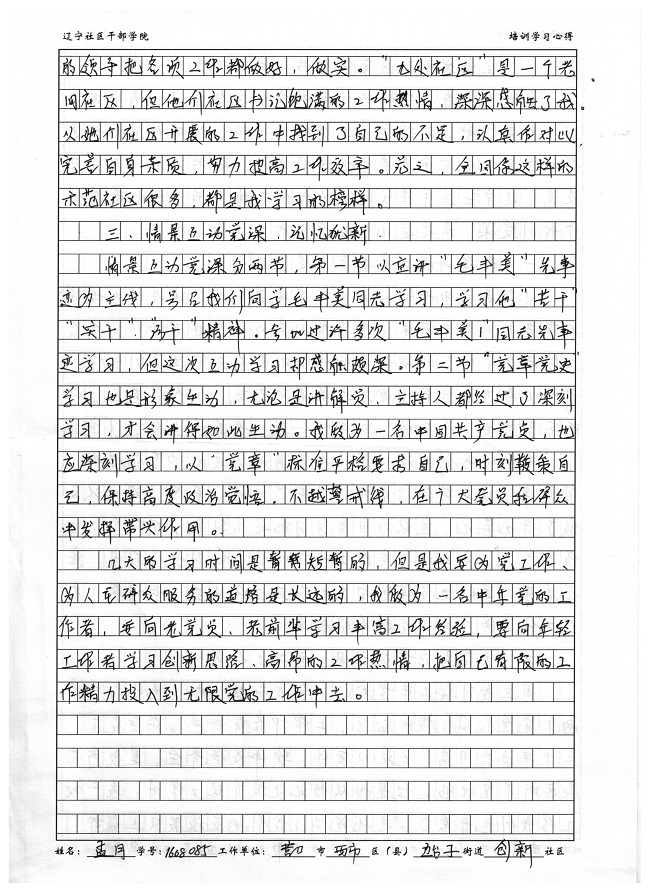 辽宁社区干部学院 培训学习心得
的领导把各项工作都做好，做实。“七处社区”是一个老
旧社区，但他们社区书记饱满的工作热情，深深感触了我。
从她们社区开展的工作中找到了自己的不足，认真应对以
完善自身素质，努力提高工作效率。总之，全国像这样的
示范社区很多，都是我学习的榜样。
三、情景互动党课，记忆犹新
情景互动党课分两节，第一节以宣讲“毛丰美”先事
迹为主线，号召我们向学毛丰美同志学习，学习他“苦干”
“实干”“巧干”精神。参加过许多次“毛丰美”同志先事
迹学习，但这次互动学习却感触颇深。第二节“党章党史”
学习也是形象生动，无论是讲解员、主持人都经过了深刻
学习，才会讲得如此生动。我做为一名中国共产党员，也
应深刻学习，以“党章”标准严格要求自己，时刻鞭策自
己，保持高度政治觉悟，不越警戒线，在广大党员和群众
中发挥带头作用。
几天的学习时间是暂短暂的，但是我军为党工作、
为人民群众服务的道路是长远的，我做为一名中年党的工
作者，要向老党员、老前辈学习丰富工作经验，要向年轻
工作者学习创新思路、高昂的工作热情，把自己有限的工
作精力投入到无限党的工作中去。
姓名：孟月 学号：1608085 工作单位：营口 市 西市 区（县） 五台子 街道 创新 社区